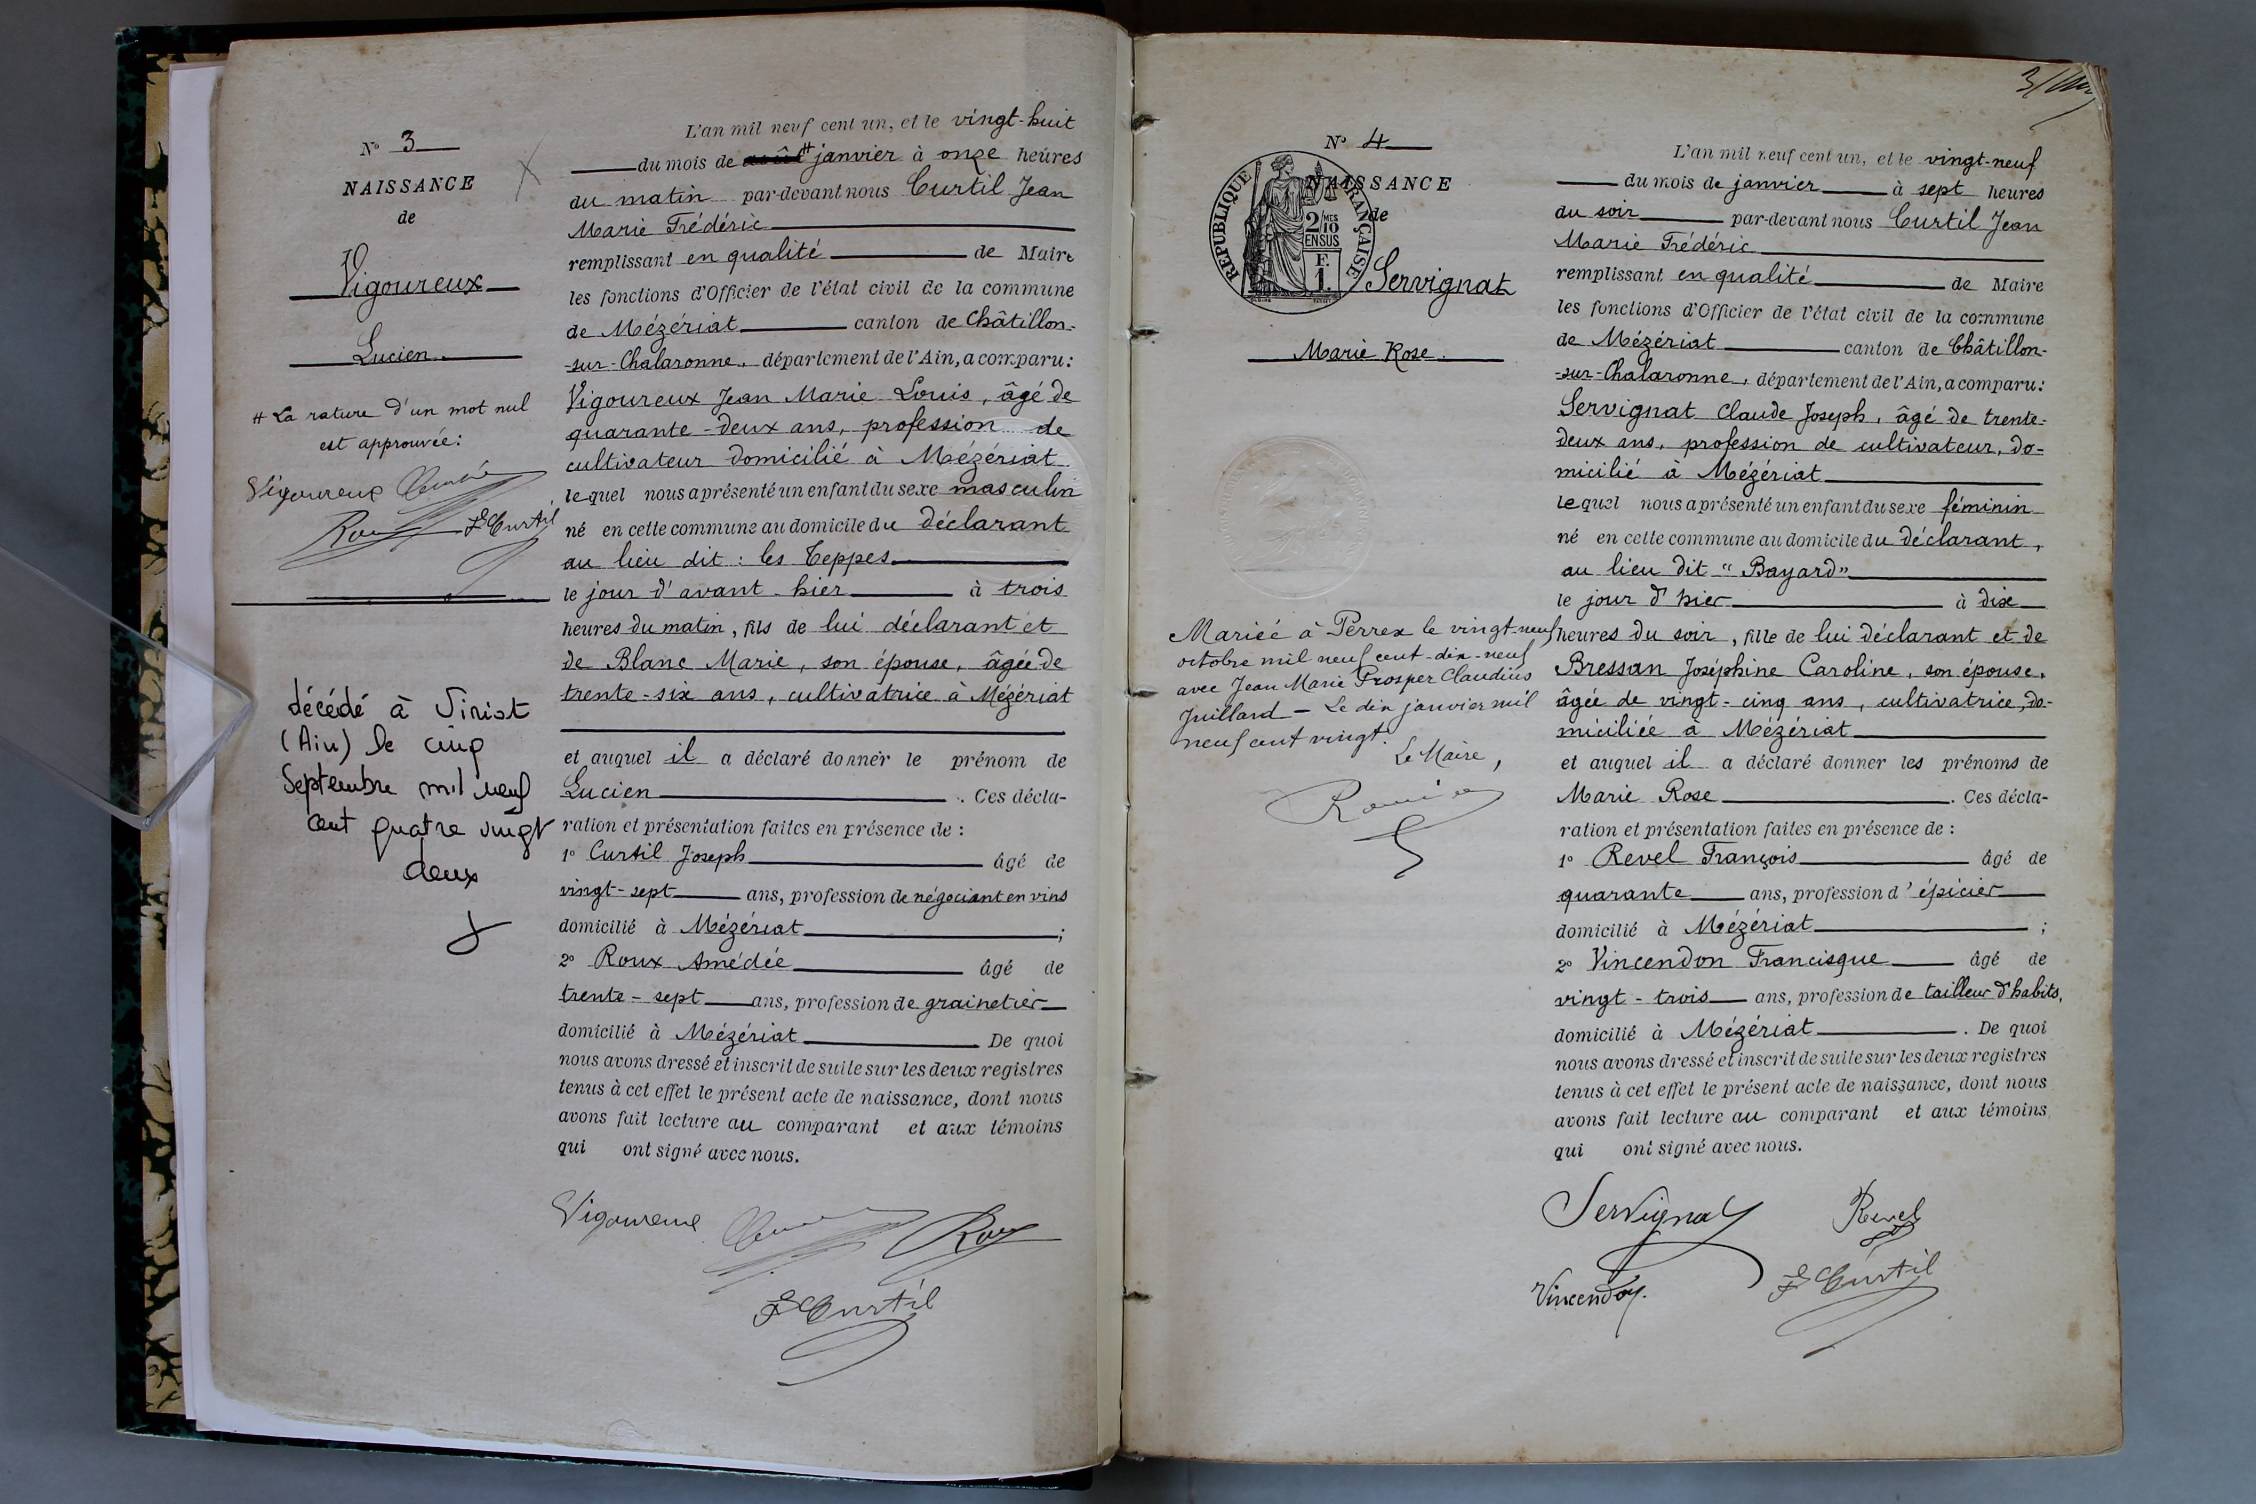 N° 3
NAISSANCE
de
Vigoureux
Lucien
# La rature d'un mot nul
est approuvée:
Vigoureux
Roux F Curtil
décédé à Viriat
(Ain) le cinq
Septembre mil neuf
cent quatre vingt
deux
L'an mil neuf cent un, et le vingt-huit
du mois de # janvier à onze heures
du matin par-devant nous Curtil Jean
Marie Frédéric
remplissant en qualité de Maire
les fonctions d'Officier de l'état civil de la commune
de Mézériat canton de Châtillon-
-sur-Chalaronne, département de l'Ain, a comparu:
Vigoureux Jean Marie Louis, âgé de
quarante-deux ans, profession de
cultivateur domicilié à Mézériat
lequel nous a présenté un enfant du sexe masculin
né en cette commune au domicile du déclarant
au lieu dit : les Teppes
le jour d'avant-hier à trois
heures du matin, fils de lui déclarant et
de Blanc Marie, son épouse, âgée de
trente-six ans, cultivatrice à Mézériat
et auquel il a déclaré donner le prénom de
Lucien. Ces décla-
ration et présentation faites en présence de :
1° Curtil Joseph âgé de
vingt-sept ans, profession de négociant en vins
domicilié à Mézériat ;
2° Roux Amédée âgé de
trente-sept ans, profession de grainetier
domicilié à Mézériat De quoi
nous avons dressé et inscrit de suite sur les deux registres
tenus à cet effet le présent acte de naissance, dont nous
avons fait lecture au comparant et aux témoins
qui ont signé avec nous.
Vigoureux Roux
F Curtil
3/
N° 4
NAISSANCE
de
RÉPUBLIQUE FRANÇAISE
2/10 MES
EN SUS
F.
1.
Servignat
Marie Rose
Mariée à Perrex le vingt-neuf
octobre mil neuf cent-dix-neuf
avec Jean Marie Prosper Claudius
Juillard - Le dix janvier mil
neuf cent vingt.
Le Maire,
L'an mil neuf cent un, et le vingt-neuf
du mois de janvier à sept heures
du soir par-devant nous Curtil Jean
Marie Frédéric
remplissant en qualité de Maire
les fonctions d'Officier de l'état civil de la commune
de Mézériat canton de Châtillon-
-sur-Chalaronne, département de l'Ain, a comparu:
Servignat Claude Joseph, âgé de trente-
deux ans, profession de cultivateur, do-
micilié à Mézériat
lequel nous a présenté un enfant du sexe féminin
né en cette commune au domicile du déclarant,
au lieu dit "Bayard"
le jour d'hier à dix
heures du soir, fille de lui déclarant et de
Bressan Joséphine Caroline, son épouse,
âgée de vingt-cinq ans, cultivatrice, do-
miciliée à Mézériat
et auquel il a déclaré donner les prénoms de
Marie Rose. Ces décla-
ration et présentation faites en présence de :
1° Revel François âgé de
quarante ans, profession d'épicier
domicilié à Mézériat ;
2° Vincendon Francisque âgé de
vingt-trois ans, profession de tailleur d'habits,
domicilié à Mézériat. De quoi
nous avons dressé et inscrit de suite sur les deux registres
tenus à cet effet le présent acte de naissance, dont nous
avons fait lecture au comparant et aux témoins
qui ont signé avec nous.
Servignat Revel
Vincendon F Curtil